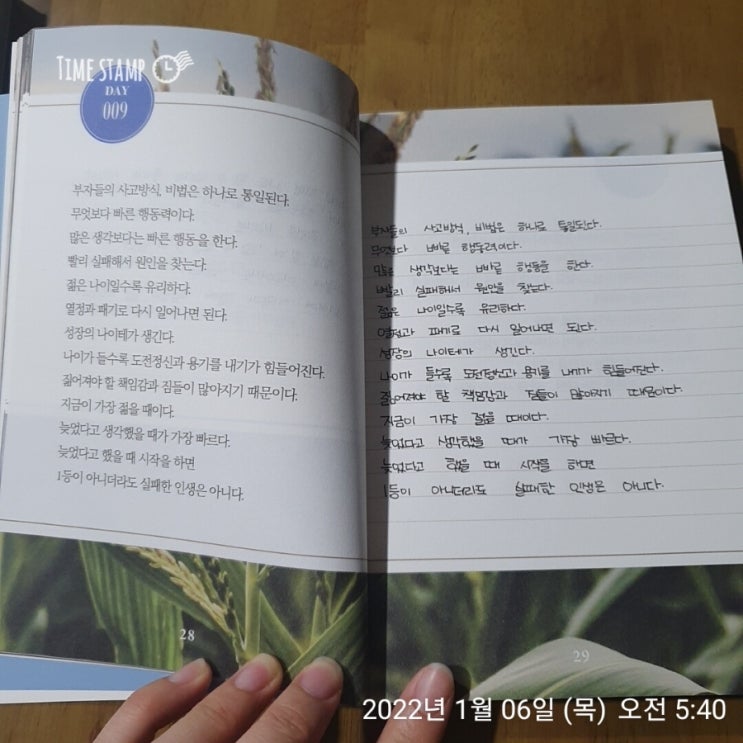 TIME STAMP
DAY
009
부자들의 사고방식, 비법은 하나로 통일된다.
무엇보다 빠른 행동력이다.
많은 생각보다는 빠른 행동을 한다.
빨리 실패해서 원인을 찾는다.
젊은 나이일수록 유리하다.
열정과 패기로 다시 일어나면 된다.
성장의 나이테가 생긴다.
나이가 들수록 도전정신과 용기를 내기가 힘들어진다.
짊어져야 할 책임감과 짐들이 많아지기 때문이다.
지금이 가장 젊을 때이다.
늦었다고 생각했을 때가 가장 빠르다.
늦었다고 했을 때 시작을 하면
1등이 아니더라도 실패한 인생은 아니다.
28
부자들의 사고방식, 비법은 하나로 통일된다.
무엇보다 빠른 행동력이다.
많은 생각보다는 빠른 행동을 한다.
빨리 실패해서 원인을 찾는다.
젊은 나이일수록 유리하다.
열정과 패기로 다시 일어나면 된다.
성장의 나이테가 생긴다.
나이가 들수록 도전정신과 용기를 내기가 힘들어진다.
짊어져야 할 책임감과 짐들이 많아지기 때문이다.
지금이 가장 젊을 때이다.
늦었다고 생각했을 때가 가장 빠르다.
늦었다고 했을 때 시작을 하면
1등이 아니더라도 실패한 인생은 아니다.
29
2022년 1월 06일 (목) 오전 5:40